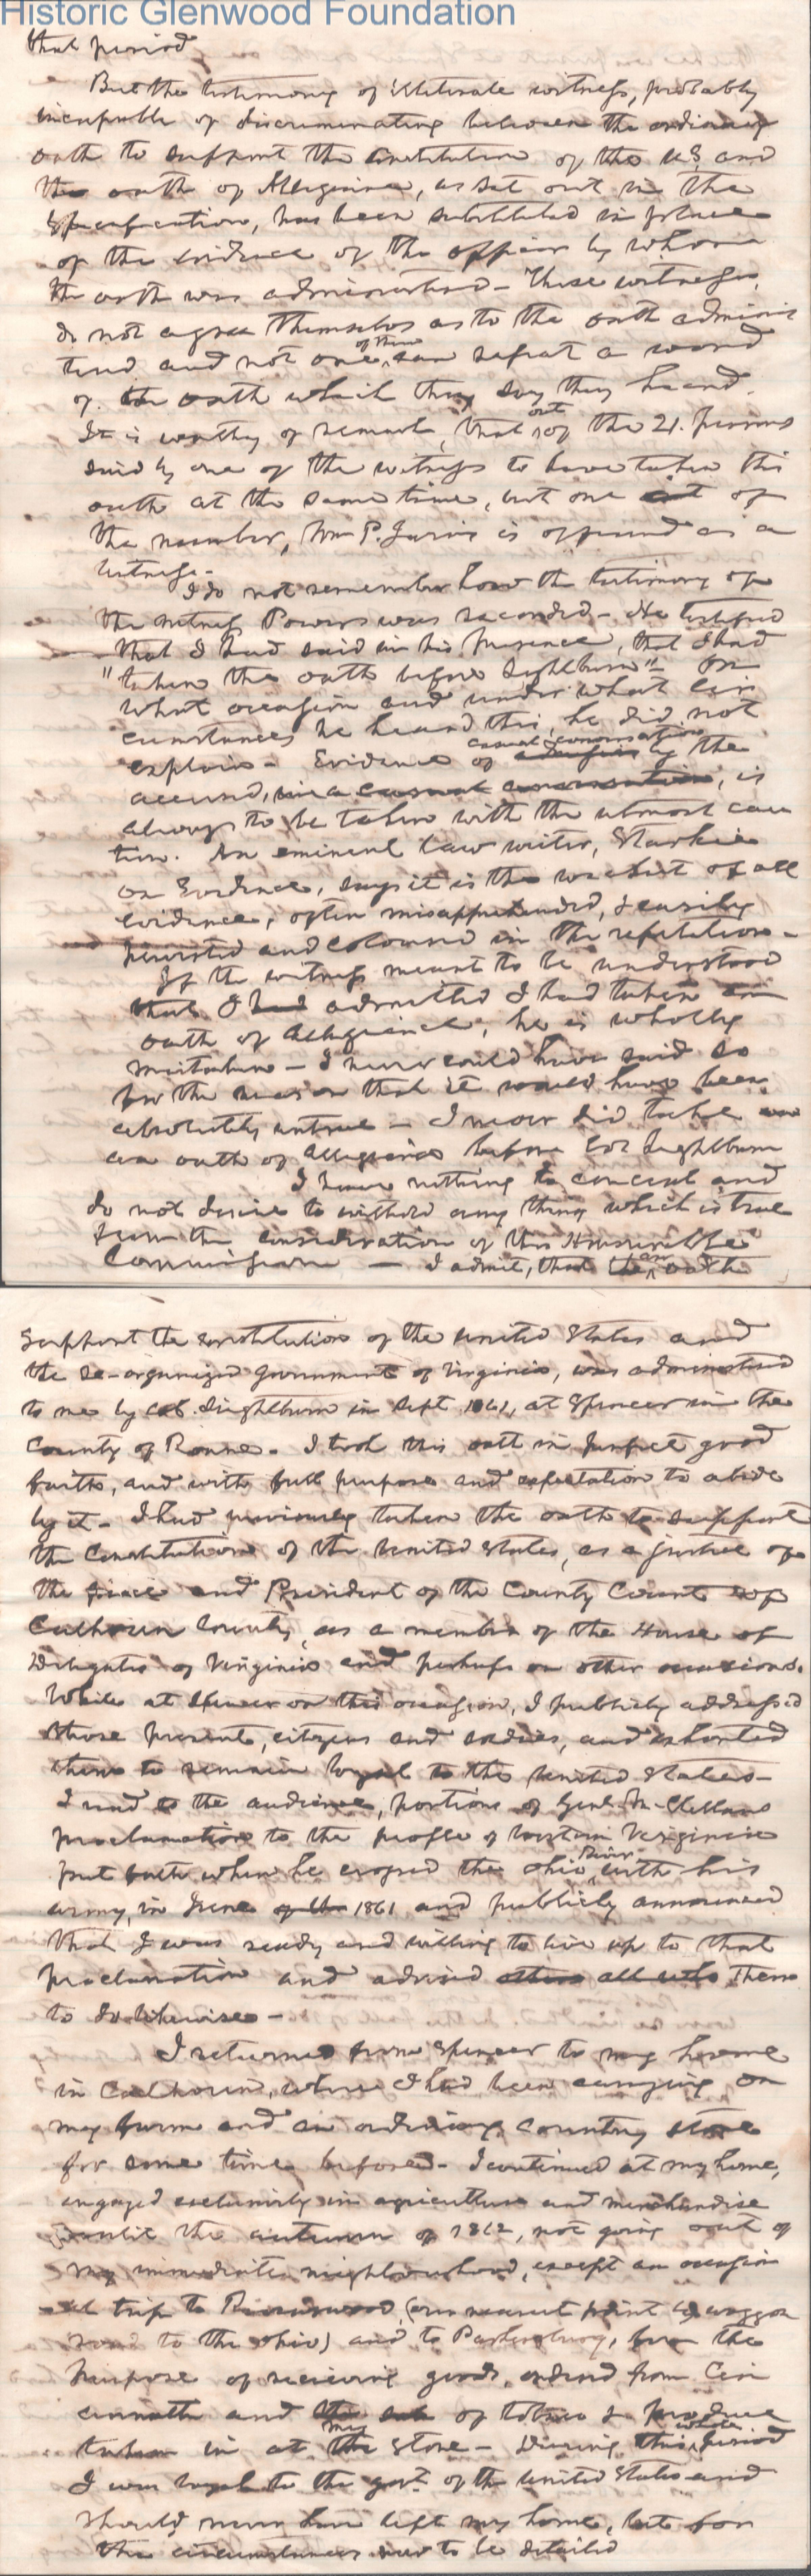 Historic Glenwood Foundation
that period
But the testimony of illiterate witness, probably
incapable of discriminating between the ordinary
oath to support the Constitution of the U.S. and
the oath of Allegiance, as set out in the
Specification, has been substituted in place
of the evidence of the officer by whom
the oath was administered - These witnesses,
do not agree themselves as to the oath adminis
tered and not one of them can repeat a word
of the oath which they say they heard.
It is worthy of remark, that out of the 21. persons
said by one of the witness to have taken this
oath at the same time, but one of
the number, Wm P. Jarvis is offered as a
witness -
I do not remember how the testimony of
the witness Powers was recorded - He testified
that I had said in his presence, that I had
"taken the oath before Lightburn" - On
what occasion and under what cir
cumstances he heard this, he did not
explain - Evidence of casual conversation by the
accused, in a casual conversation, is
always to be taken with the utmost cau
tion. An eminent law writer, Starkie
on Evidence, says it is the weakest of all
evidence, often misapprehended, & easily
perverted and coloured in the repetition -
If the witness meant to be understood
that I had admitted I had taken an
oath of Allegiance, he is wholly
mistaken - I never could have said so
for the reason that it would have been
absolutely untrue - I never did take
an oath of Allegiance before Col Lightburn
I have nothing to conceal and
do not desire to withold any thing which is true
from the consideration of this Honourable
Commission - I admit, that an oath
support the constitution of the United States and
the re-organized government of Virginia, was administered
to me by Col. Lightburn in Sept 1861, at Spencer in the
County of Roane. I took this oath in perfect good
faith, and with full purpose and expectation to abide
by it - I had previously taken the oath to support
the Constitution of the United States, as a justice of
the peace and President of the County Court of
Calhoun County, as a member of the House of
Delegates of Virginia and perhaps on other occasions.
While at Spencer on this occasion, I publicly addressed
those present, citizens and soldiers, and exhorted
them to remain loyal to the United States -
I read to the audience, portions of Genl McClellans
proclamation to the people of Western Virginia
put forth when he crossed the Ohio River with his
army, in June 1861 and publicly announced
that I was ready and willing to live up to that
proclamation and advised others all who them
to do likewise -
I returned from Spencer to my home
in Calhoun, where I had been carrying on
my farm and an ordinary country store
for some time before - I continued at my home,
engaged exclusively in agriculture and merchandise
until the autumn of 1862, not going out of
my immediate neighbourhood, except an occasion
al trip to Ravenswood, (our nearest point by waggon
road to the Ohio) and to Parkersburg, for the
purpose of receiving goods, ordered from Cin
cinnatti and the sale of tobacco & produce
taken in at my the store - During this whole period
I was loyal to the govt of the United States and
should never have left my home, but for
the circumstances now to be detailed